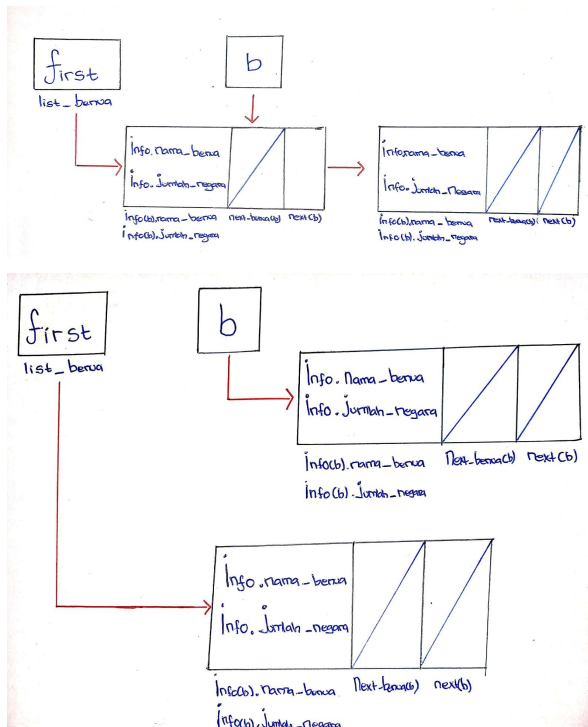 first
b
list_benua
info.nama_benua
info.jumlah_negara
info.nama_benua
info.jumlah_negara
info(b).nama_benua next_benua(b) next(b)
info(b).jumlah_negara
info(b).nama_benua next_benua(b) next(b)
info(b).jumlah_negara
first
b
list_benua
info.nama_benua
info.jumlah_negara
info(b).nama_benua next_benua(b) next(b)
info(b).jumlah_negara
info.nama_benua
info.jumlah_negara
info(b).nama_benua next_benua(b) next(b)
info(b).jumlah_negara